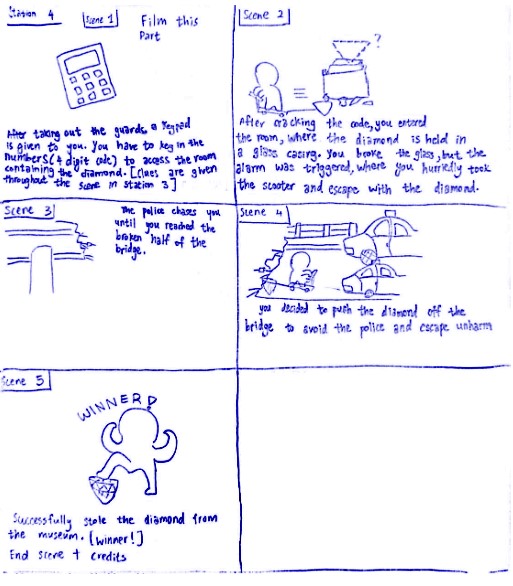 Station 4
Scene 1
Film this
Part
After taking out the guards, a keypad
is given to you. You have to key in the
numbers (4 digit code) to access the room
containing the diamond. [Clues are given
throughout the scene in station 3]
Scene 2
?
After cracking the code, you entered
the room, where the diamond is held in
a glass casing. You broke the glass, but the
alarm was triggered, where you hurriedly took
the scooter and escape with the diamond.
Scene 3
The police chases you
until you reached the
broken half of the
bridge.
Scene 4
you decided to push the diamond off the
bridge to avoid the police and escape unharm
Scene 5
WINNER!
Successfully stole the diamond from
the museum. [winner!]
End scene + credits